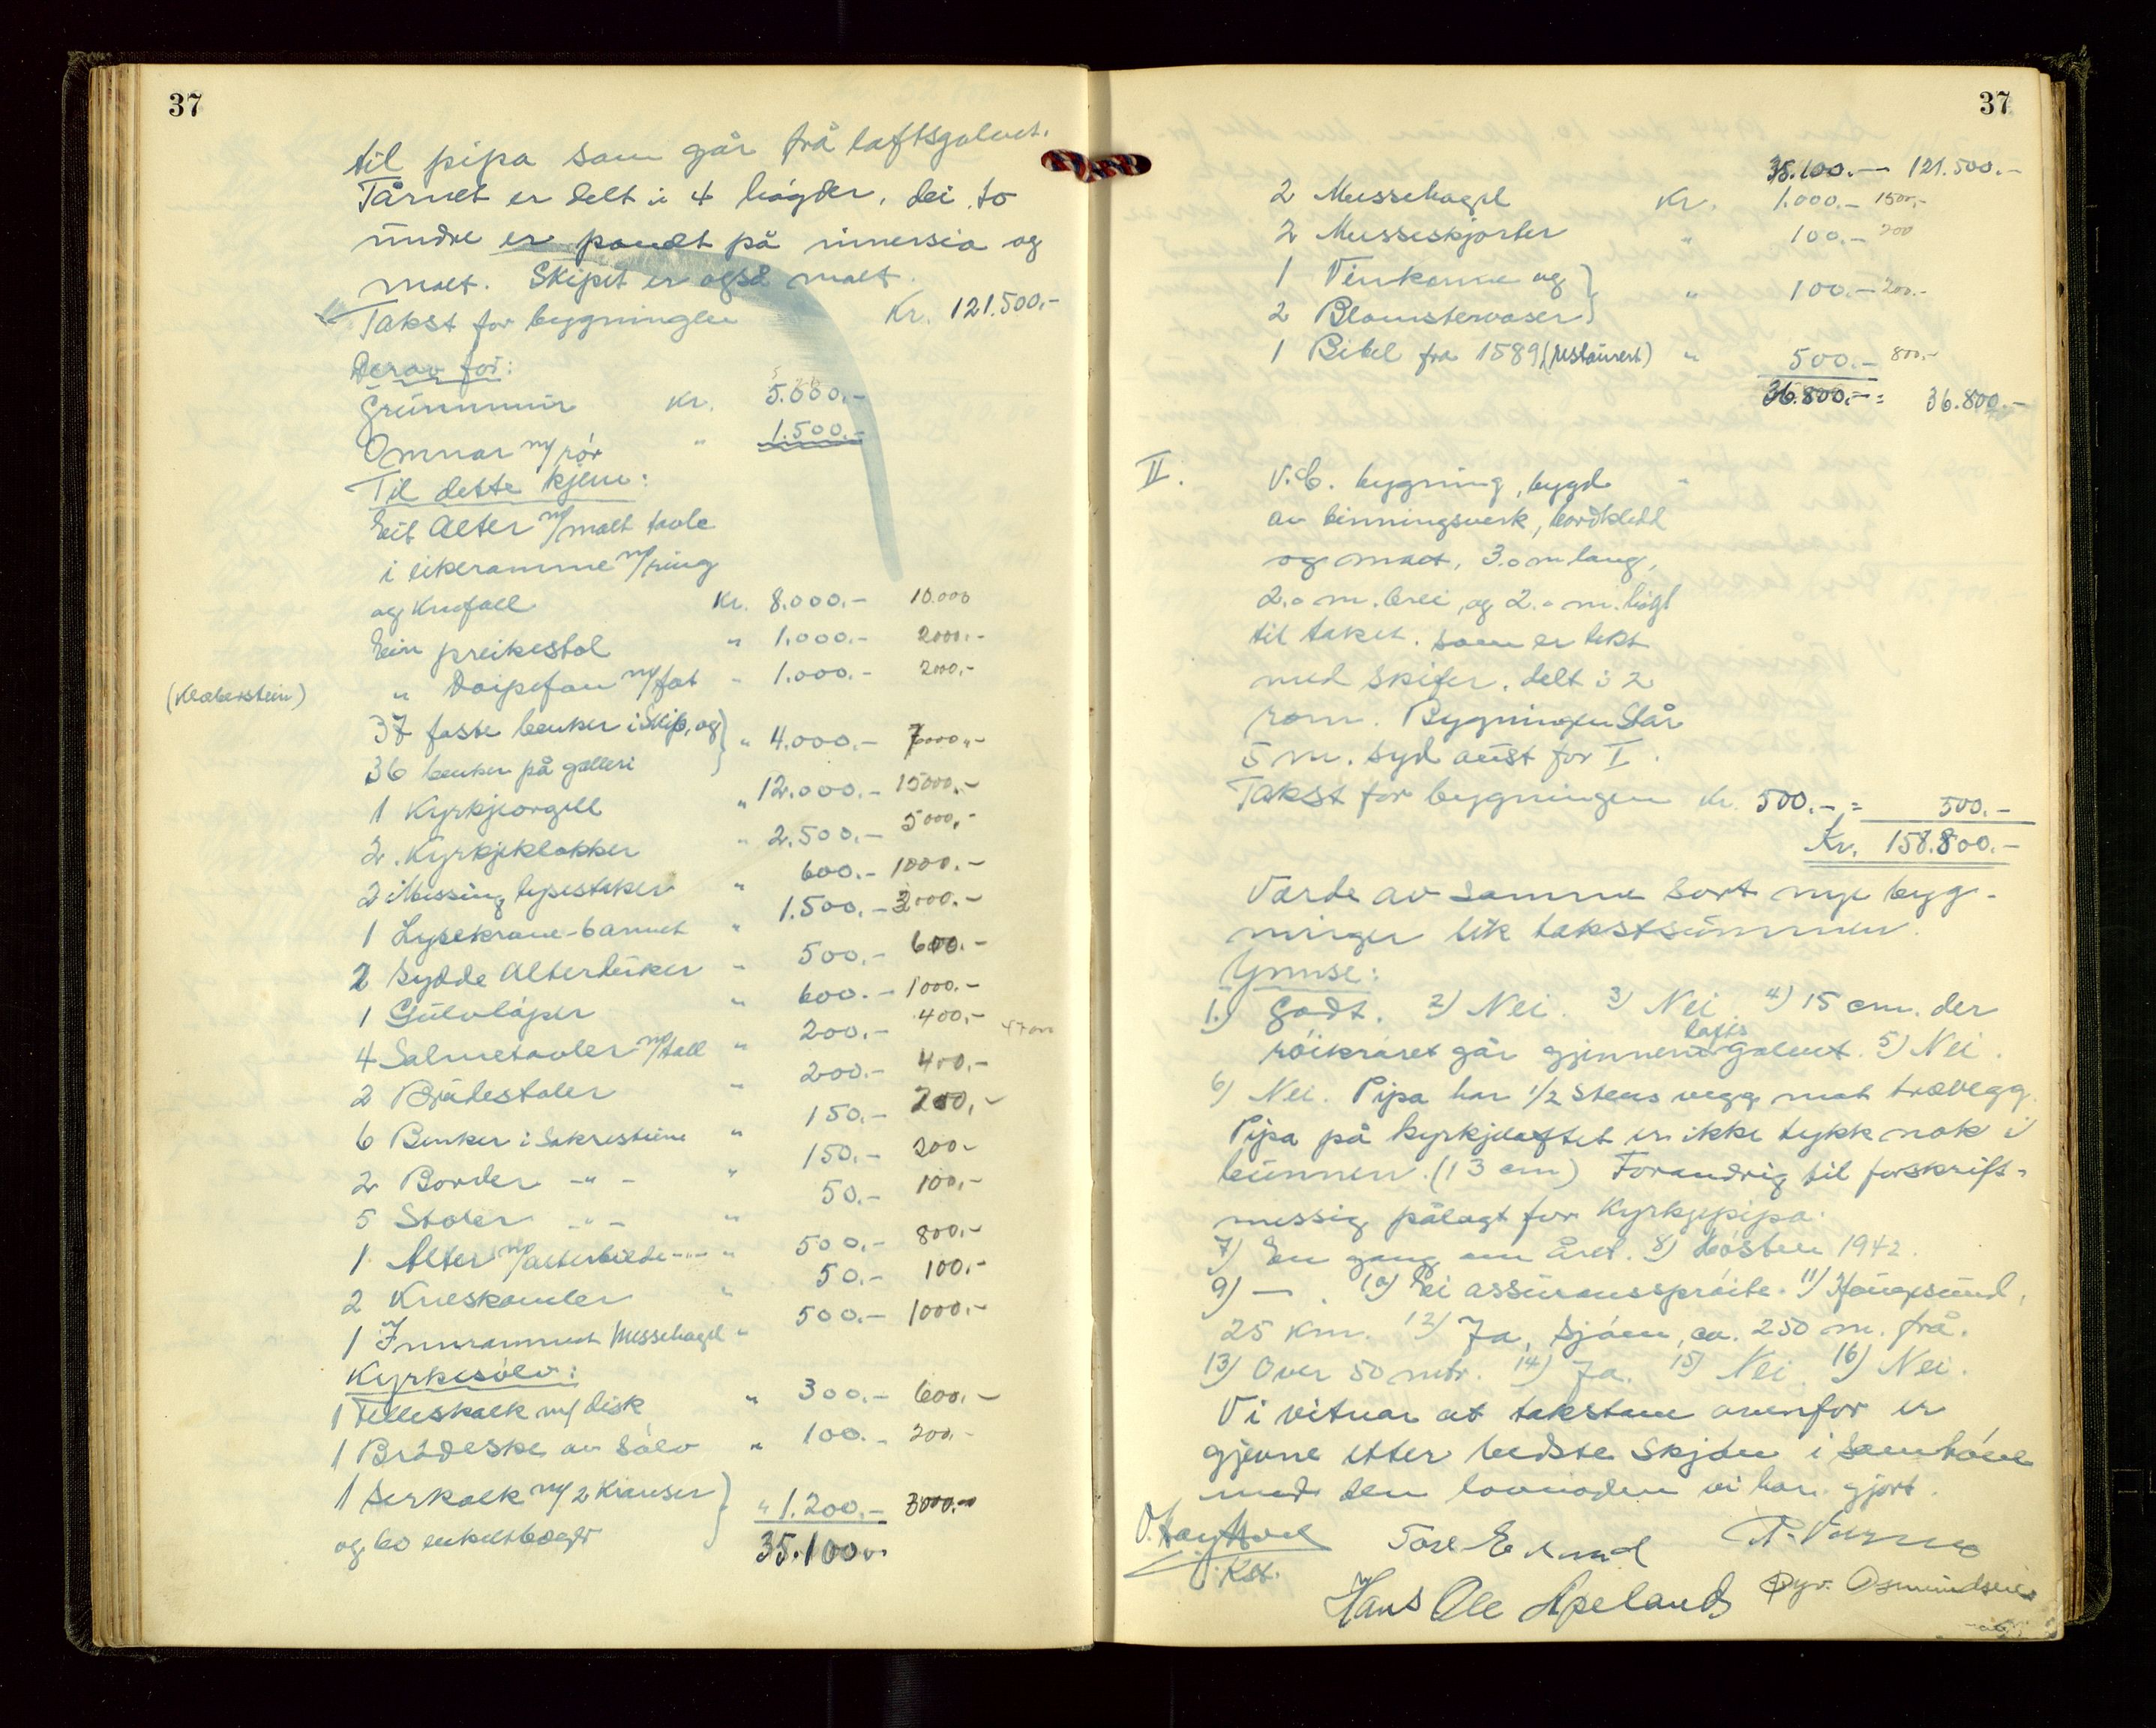 37
til pipa som går frå loftsgolvet.
Tårnet er delt i 4 høgder, dei to
undre er pandt på innersia og
malt. Skipet er også malt.
Takst for bygningen Kr. 121.500.-
Derav for:
Grunnmur Kr. 5.000.-
Omnar m/rör " 1.500.-
Til dette kjem:
Eit Alter m/malt tavle
i eikeramme m/ring
og knefall Kr. 8.000.- 10.000
Ein preikestol " 1.000.- 2000.-
(Kleberstein) " Døipefon m/fat " 1.000.- 2000.-
37 faste benker i Skip, og
36 benker på galleri } " 4.000.- 7000.-
1 Kyrkjeorgell " 12.000.- 15000.-
2 Kyrkjeklokker " 2.500.- 5000.-
2 Messing lysestaker " 600.- 1000.-
1 Lysekrone-6armet " 1.500.- 3000.-
2 Sydde Alterduker " 500.- 600.-
1 Gulvløper " 600.- 1000.-
4 Salmetavler m/tall " 200.- 400.-
2 Brudestoler " 200.- 400.-
6 Benker i Sakresteine " 150.- 200.-
2 Border -"- " 150.- 200.-
5 Stoler -"- " 50.- 100.-
1 Alter m/alterbilde -"- " 500.- 800.-
2 Kneskamler " 50.- 100.-
1 Innrammet Messehagel " 500.- 1000.-
Kyrkesølv:
1 Felleskalk m/disk " 300.- 600.-
1 Brødeske av sølv " 100.- 200.-
1 Serkalk m/2 Kranser
og 60 enkeltbæger } " 1.200.- 3000.-
35.100.-
37
35.100.- 121.500.-
2 Messehagel Kr. 1.000.- 1500.-
2 Messeskjorter " 100.- 200
1 Vinkanne og
2 Blomstervaser } " 100.- 200.-
1 Bibel fra 1589 (restaurert) " 500.- 800.-
36.800.- = 36.800.-
II. V.C. bygning, bygd
av binningsverk, bordkledd
og malt, 3.0 m lang,
2.0 m. brei, og 2.0 m. høgt
til taket. som er tekt
med skifer. delt i 2
rom. Bygningen står
5 m. syd aust for I.
Takst for bygningen Kr. 500.- = 500.-
Kr. 158.800.-
Verde av samme sort nye byg-
ninger lik takstsummen.
Ymse:
1.) Godt. 2) Nei. 3) Nei. 4) 15 cm. der
röikröret går gjennem lofts golvet. 5) Nei.
6) Nei. Pipa har 1/2 Stens vegg mot trævegg.
Pipa på kyrkjeloftet er ikke tykk nok i
bunnen. (13 cm) Forandrig til forskrifts-
messig pålagt for Kyrkjepipa.
7) En gang om året. 8) Høsten 1942.
9) — . 10) Ei assuransspröite. 11) Haugesund,
25 Km. 12) Ja, Sjöen, ca. 250 m. frå.
13) Over 50 mtr. 14) Ja. 15) Nei. 16) Nei.
Vi vitnar at takstane ovenfor er
gjevne etter bedste skjøn i samhöve
med den lovnaden vi har gjort.
Kst.
Hans Ole Apeland Osmundsen